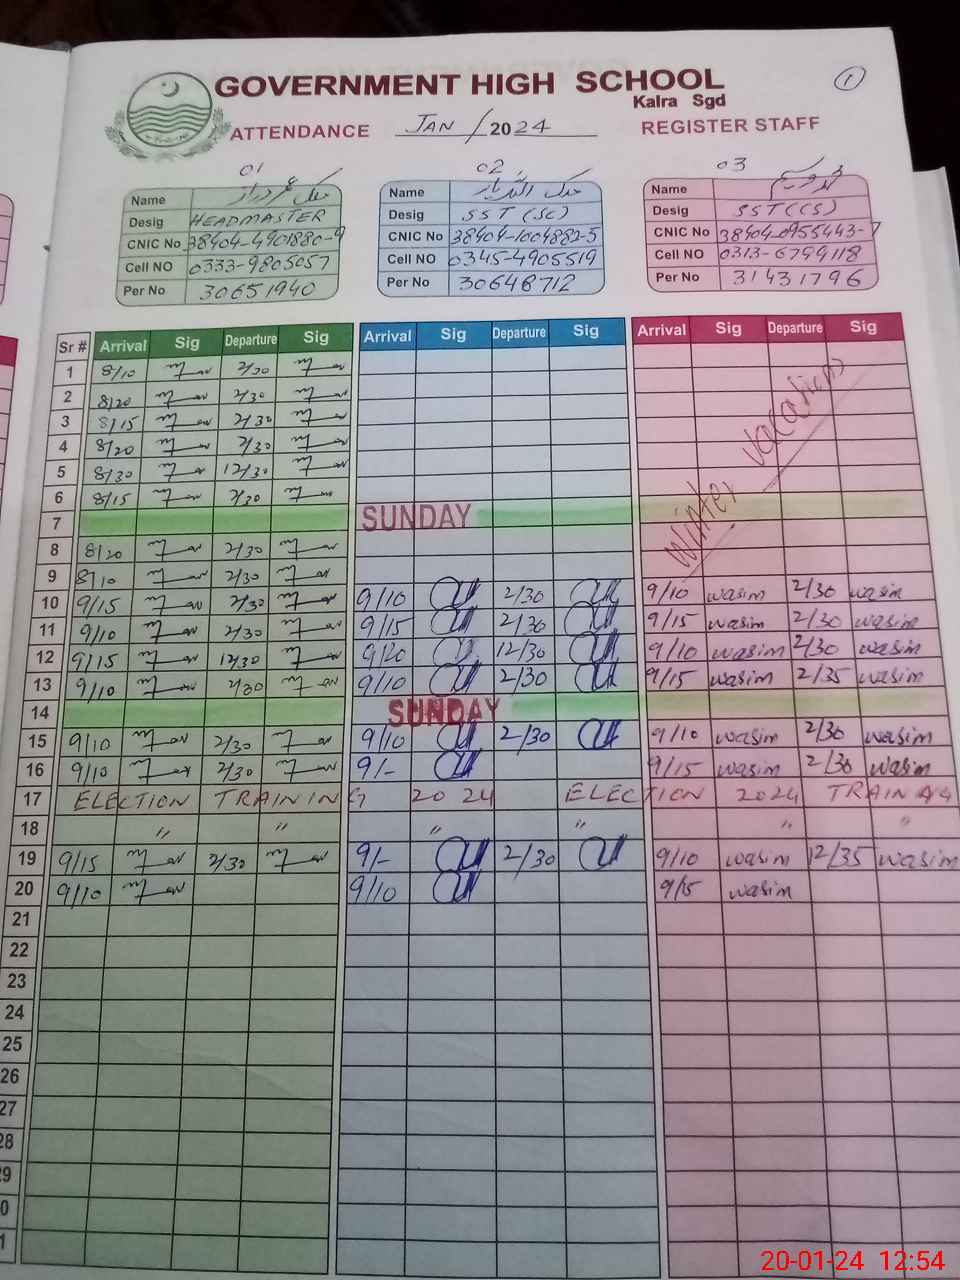 GOVERNMENT HIGH SCHOOL
Kalra Sgd
1
ATTENDANCE JAN / 2024 REGISTER STAFF
01 02 03
Name Name ملک اللہ یار Name
Desig HEADMASTER Desig SST (SC) Desig SST (CS)
CNIC No 38404-4901880-9 CNIC No 38404-1004882-5 CNIC No 38404-0955443-7
Cell NO 0333-9805057 Cell NO 0345-4905519 Cell NO 0313-6799118
Per No 30651940 Per No 30648712 Per No 31431796
Sr # Arrival Sig Departure Sig Arrival Sig Departure Sig Arrival Sig Departure Sig
1 8/10 2/30
2 8/20 2/30
3 8/15 2/30
4 8/20 2/30
5 8/30 12/30
6 8/15 2/30
winter vacations
7 SUNDAY
8 8/20 2/30
9 8/10 2/30
10 9/15 2/30 9/10 2/30 9/10 wasim 2/30 wasim
11 9/10 2/30 9/15 2/30 9/15 wasim 2/30 wasim
12 9/15 12/30 9/20 12/30 9/10 wasim 2/30 wasim
13 9/10 2/30 9/10 2/30 9/15 wasim 2/35 wasim
14 SUNDAY
15 9/10 2/30 9/10 2/30 9/10 wasim 2/30 wasim
16 9/10 2/30 9/- 9/15 wasim 2/30 wasim
17 ELECTION TRAINING 2024 ELECTION 2024 TRAINING
18 " " " " " "
19 9/15 2/30 9/- 2/30 9/10 wasim 12/35 wasim
20 9/10 9/10 9/15 wasim
21
22
23
24
25
26
27
28
29
0
1
20-01-24 12:54